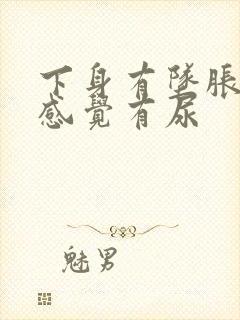 下身有墜脹
感覺有尿
魅男